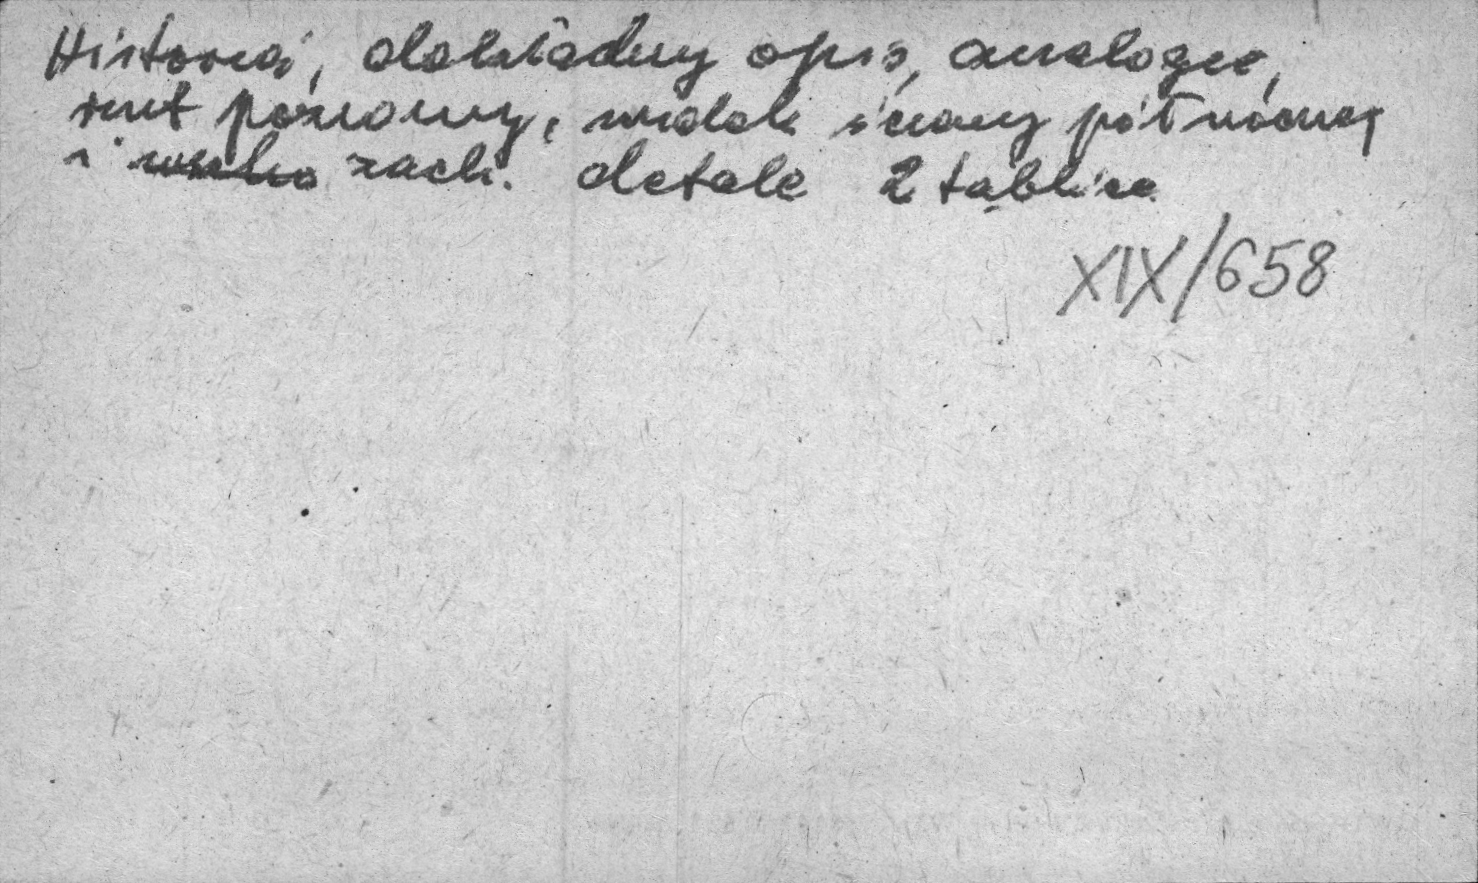 Historia, dokładny opis, analogie,
rzut poziomy, widok ściany północnej
i zach. detale 2 tablice
XIX/658